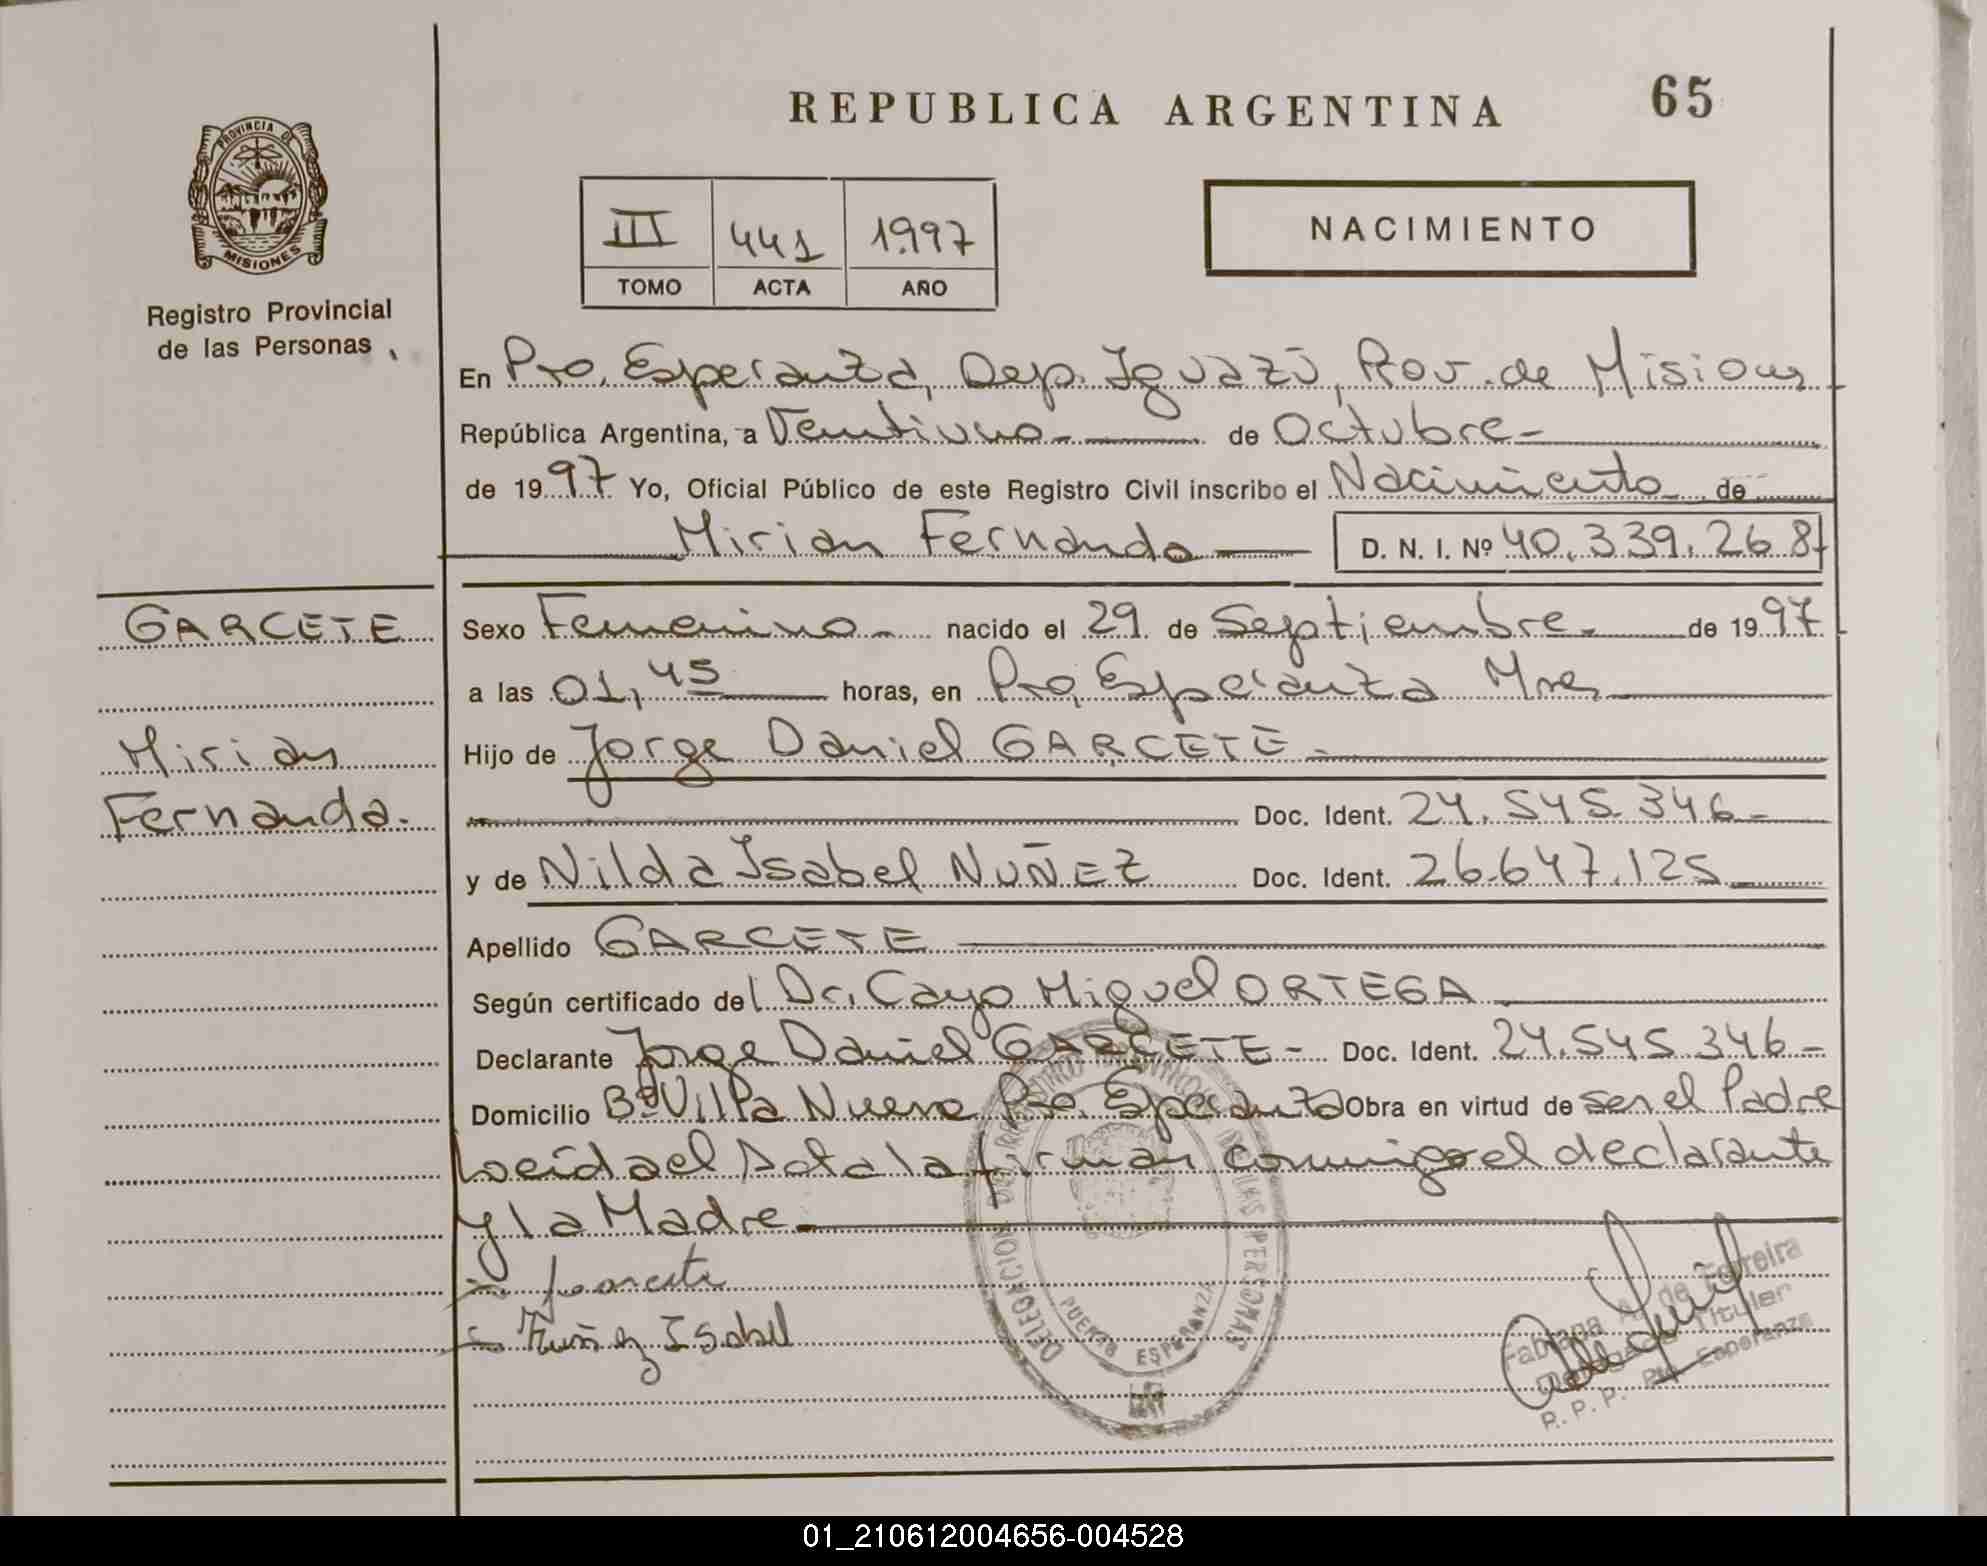 REPUBLICA ARGENTINA
65
PROVINCIA DE
MISIONES
Registro Provincial
de las Personas
III 441 1997
TOMO ACTA AÑO
NACIMIENTO
En Pto. Esperanza, Dep. Iguazú, Prov. de Misiones
República Argentina, a Veintiuno de Octubre
de 1997 Yo, Oficial Público de este Registro Civil inscribo el Nacimiento de
Mirian Fernanda D. N. I. Nº 40.339.268
GARCETE
Mirian
Fernanda.
Sexo Femenino nacido el 29 de Septiembre de 1997
a las 01,45 horas, en Pto. Esperanza Mnes
Hijo de Jorge Daniel GARCETE
Doc. Ident. 24.545.346
y de Nilda Isabel NUÑEZ Doc. Ident. 26.647.125
Apellido GARCETE
Según certificado del Dr. Cayo Miguel ORTEGA
Declarante Jorge Daniel GARCETE Doc. Ident. 24.545.346
Domicilio Bº Villa Nueva Pto. Esperanza Obra en virtud de ser el Padre
Leída el Acta la firman conmigo el declarante
y la Madre
Garcete
Nuñez Isabel
PUERTO ESPERANZA
DELEGACION DEL REGISTRO DE LAS PERSONAS
Fabiana A. de Ferreira
Delegada Titular
R. P. P. Pto. Esperanza
01_210612004656-004528